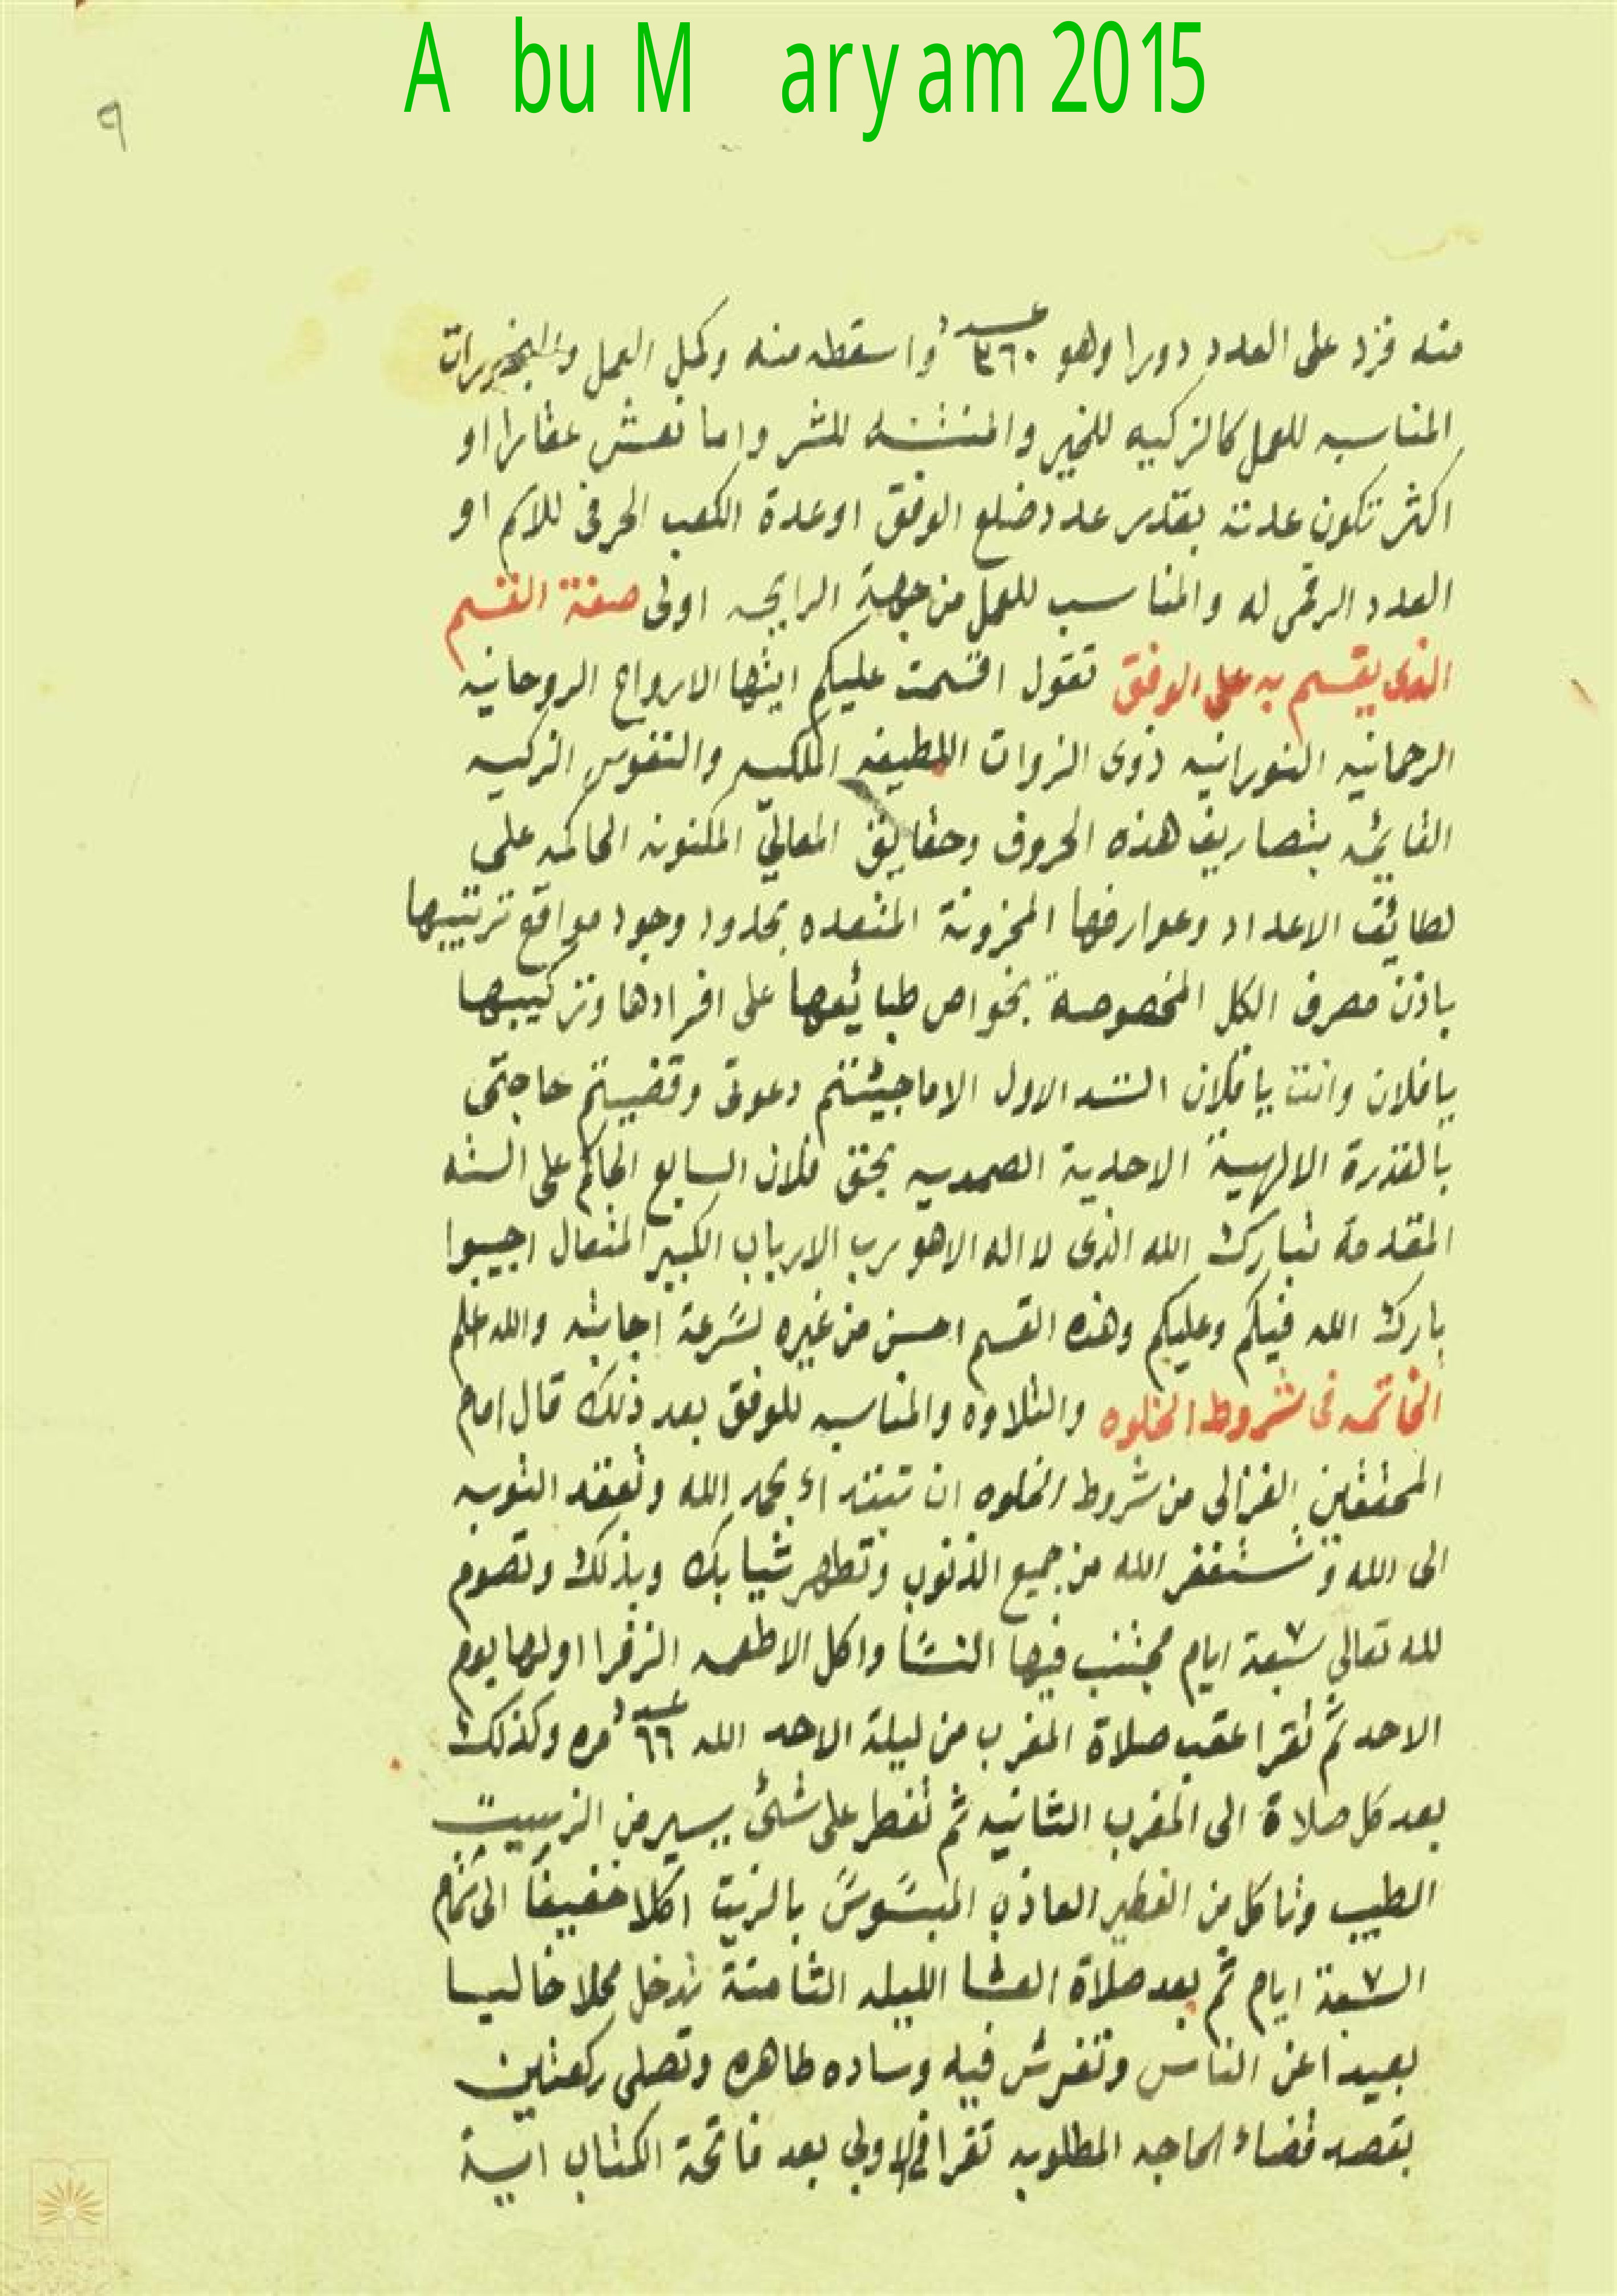 A bu M aryam 2015
٩
منه فزد على العدد دورا وهو عدد ٣٦٠ واسقطه منه وكمل العمل والبخورات
المناسبه للعمل كالزكيه للخير والمنتنه للشر واما تعش عقابرا او
اكثر تكون عدته بقدر عدد ضلع الوفق او عدة الكعب الحرفى للاسم او
العدد الرقمى له والمناسب للعمل من جهة الرايحه اولى صفة القسم
الذى يقسم به على الوفق تقول اقسمت عليكم ايتها الارواح الروحانيه
الرحمانيه النورانيه ذوى الزوات اللطيفه الملكيه والنفوس الزكيه
القايمه بتصاريف هذه الحروف وحقايق المعاني المكنونه الحاكمه على
لطائف الاعداد وعوارفها المخزونة المنعده بحدود وجود مواقع ترتيبها
باذن مصرف الكل المخصوصة بخواص طبائعها على افرادها وتركيبها
يا فلان وانت يا فلان الستة الاول الا ما جيبتم دعوتى وقضيتم حاجتى
بالقدرة الالهية الاحدية الصمديه بحق فلان السابع الحاكم على الستة
المقدمة تبارك الله الذى لا اله الا هو رب الارباب الكبير المتعال اجيبوا
بارك الله فيكم وعليكم وهذه القسم احسن من غيره لسرعة اجابته والله اعلم
الخاتمه فى شروط الخلوه والتلاوه والمناسبه للوفق بعد ذلك قال امام
المحققين الغزالى من شروط الخلوه ان تبتداء بحمد الله وتعقد التوبه
الى الله وتستغفر الله من جميع الذنوب وتطهر ثيابك وبدنك وتصوم
لله تعالى سبعة ايام مجتنب فيها النسا واكل الاطعمه الزفرا اولها يوم
الاحد ثم تقرا عقب صلاة المغرب من ليلة الاحد الله عدد ٦٦ مره وكذلك
بعد كل صلاة الى المغرب الثانيه ثم تفطر على شئ يسير من الزبيب
الطيب وتاكل من الفطير العاذب المبسوس بالزيت اكلا خفيفا الى تمام
السبعة ايام ثم بعد صلاة العشا الليله الثامنة تدخل محلا خاليا
بعيدا عن الناس وتفرش فيه وساده طاهره وتصلى ركعتين
بقصد قضاء الحاجه المطلوبه تقرا فى الاولى بعد فاتحة الكتاب اية